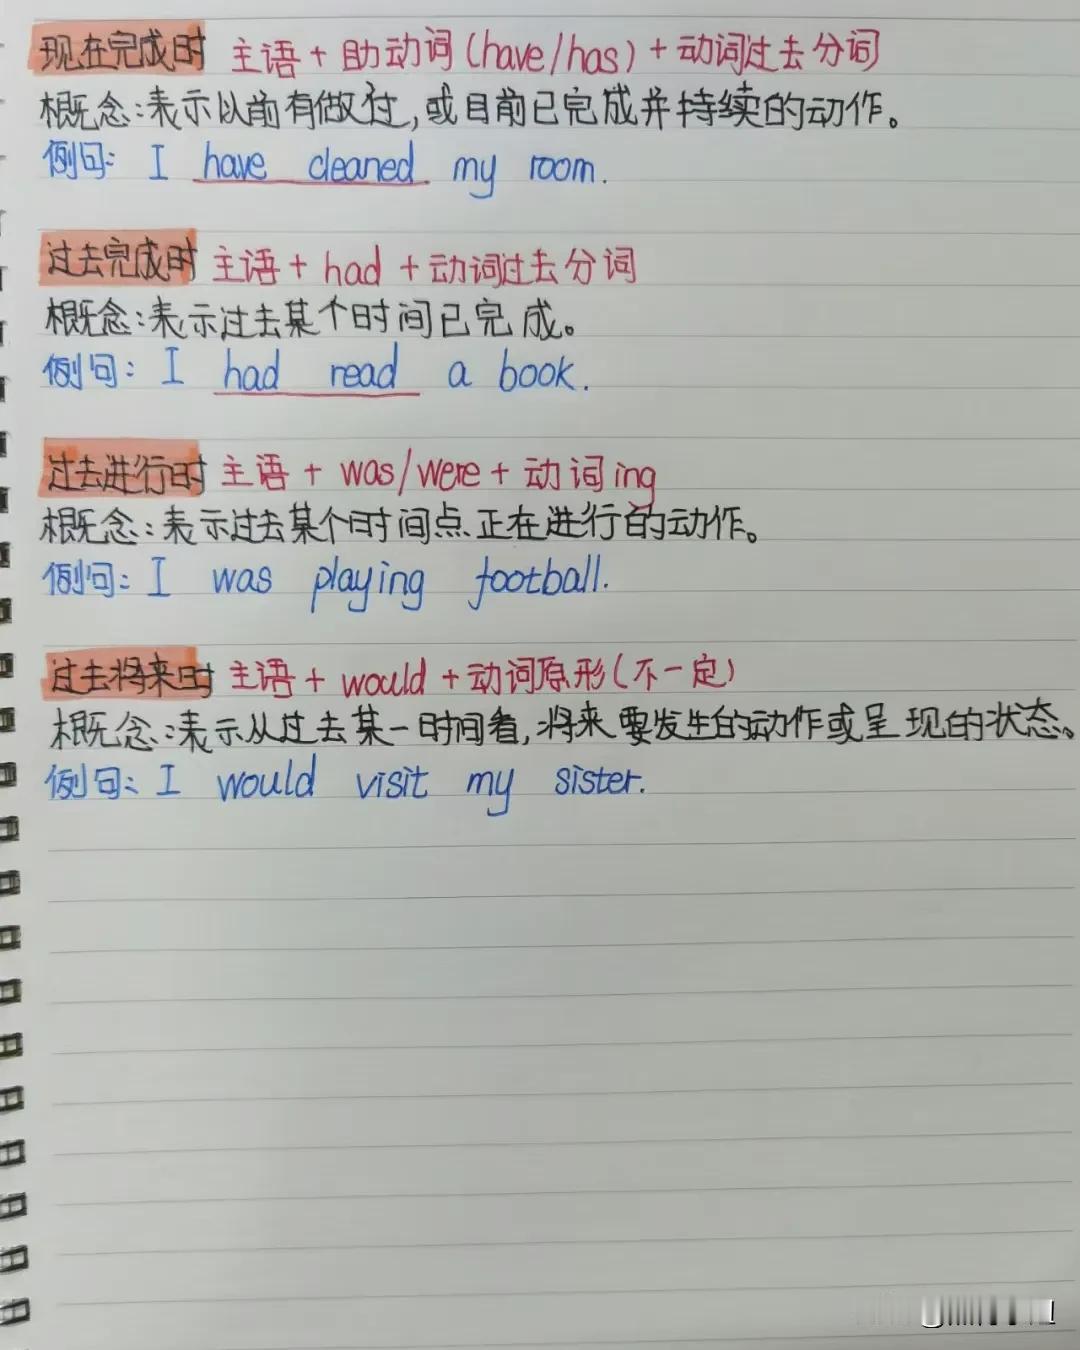 现在完成时 主语 + 助动词(have/has) + 动词过去分词
概念:表示以前有做过,或目前已完成并持续的动作。
例句: I have cleaned my room.
过去完成时 主语 + had + 动词过去分词
概念:表示过去某个时间已完成。
例句: I had read a book.
过去进行时 主语 + was/were + 动词ing
概念:表示过去某个时间点正在进行的动作。
例句: I was playing football.
过去将来时 主语 + would + 动词原形(不一定)
概念:表示从过去某一时间看,将来要发生的动作或呈现的状态。
例句: I would visit my sister.